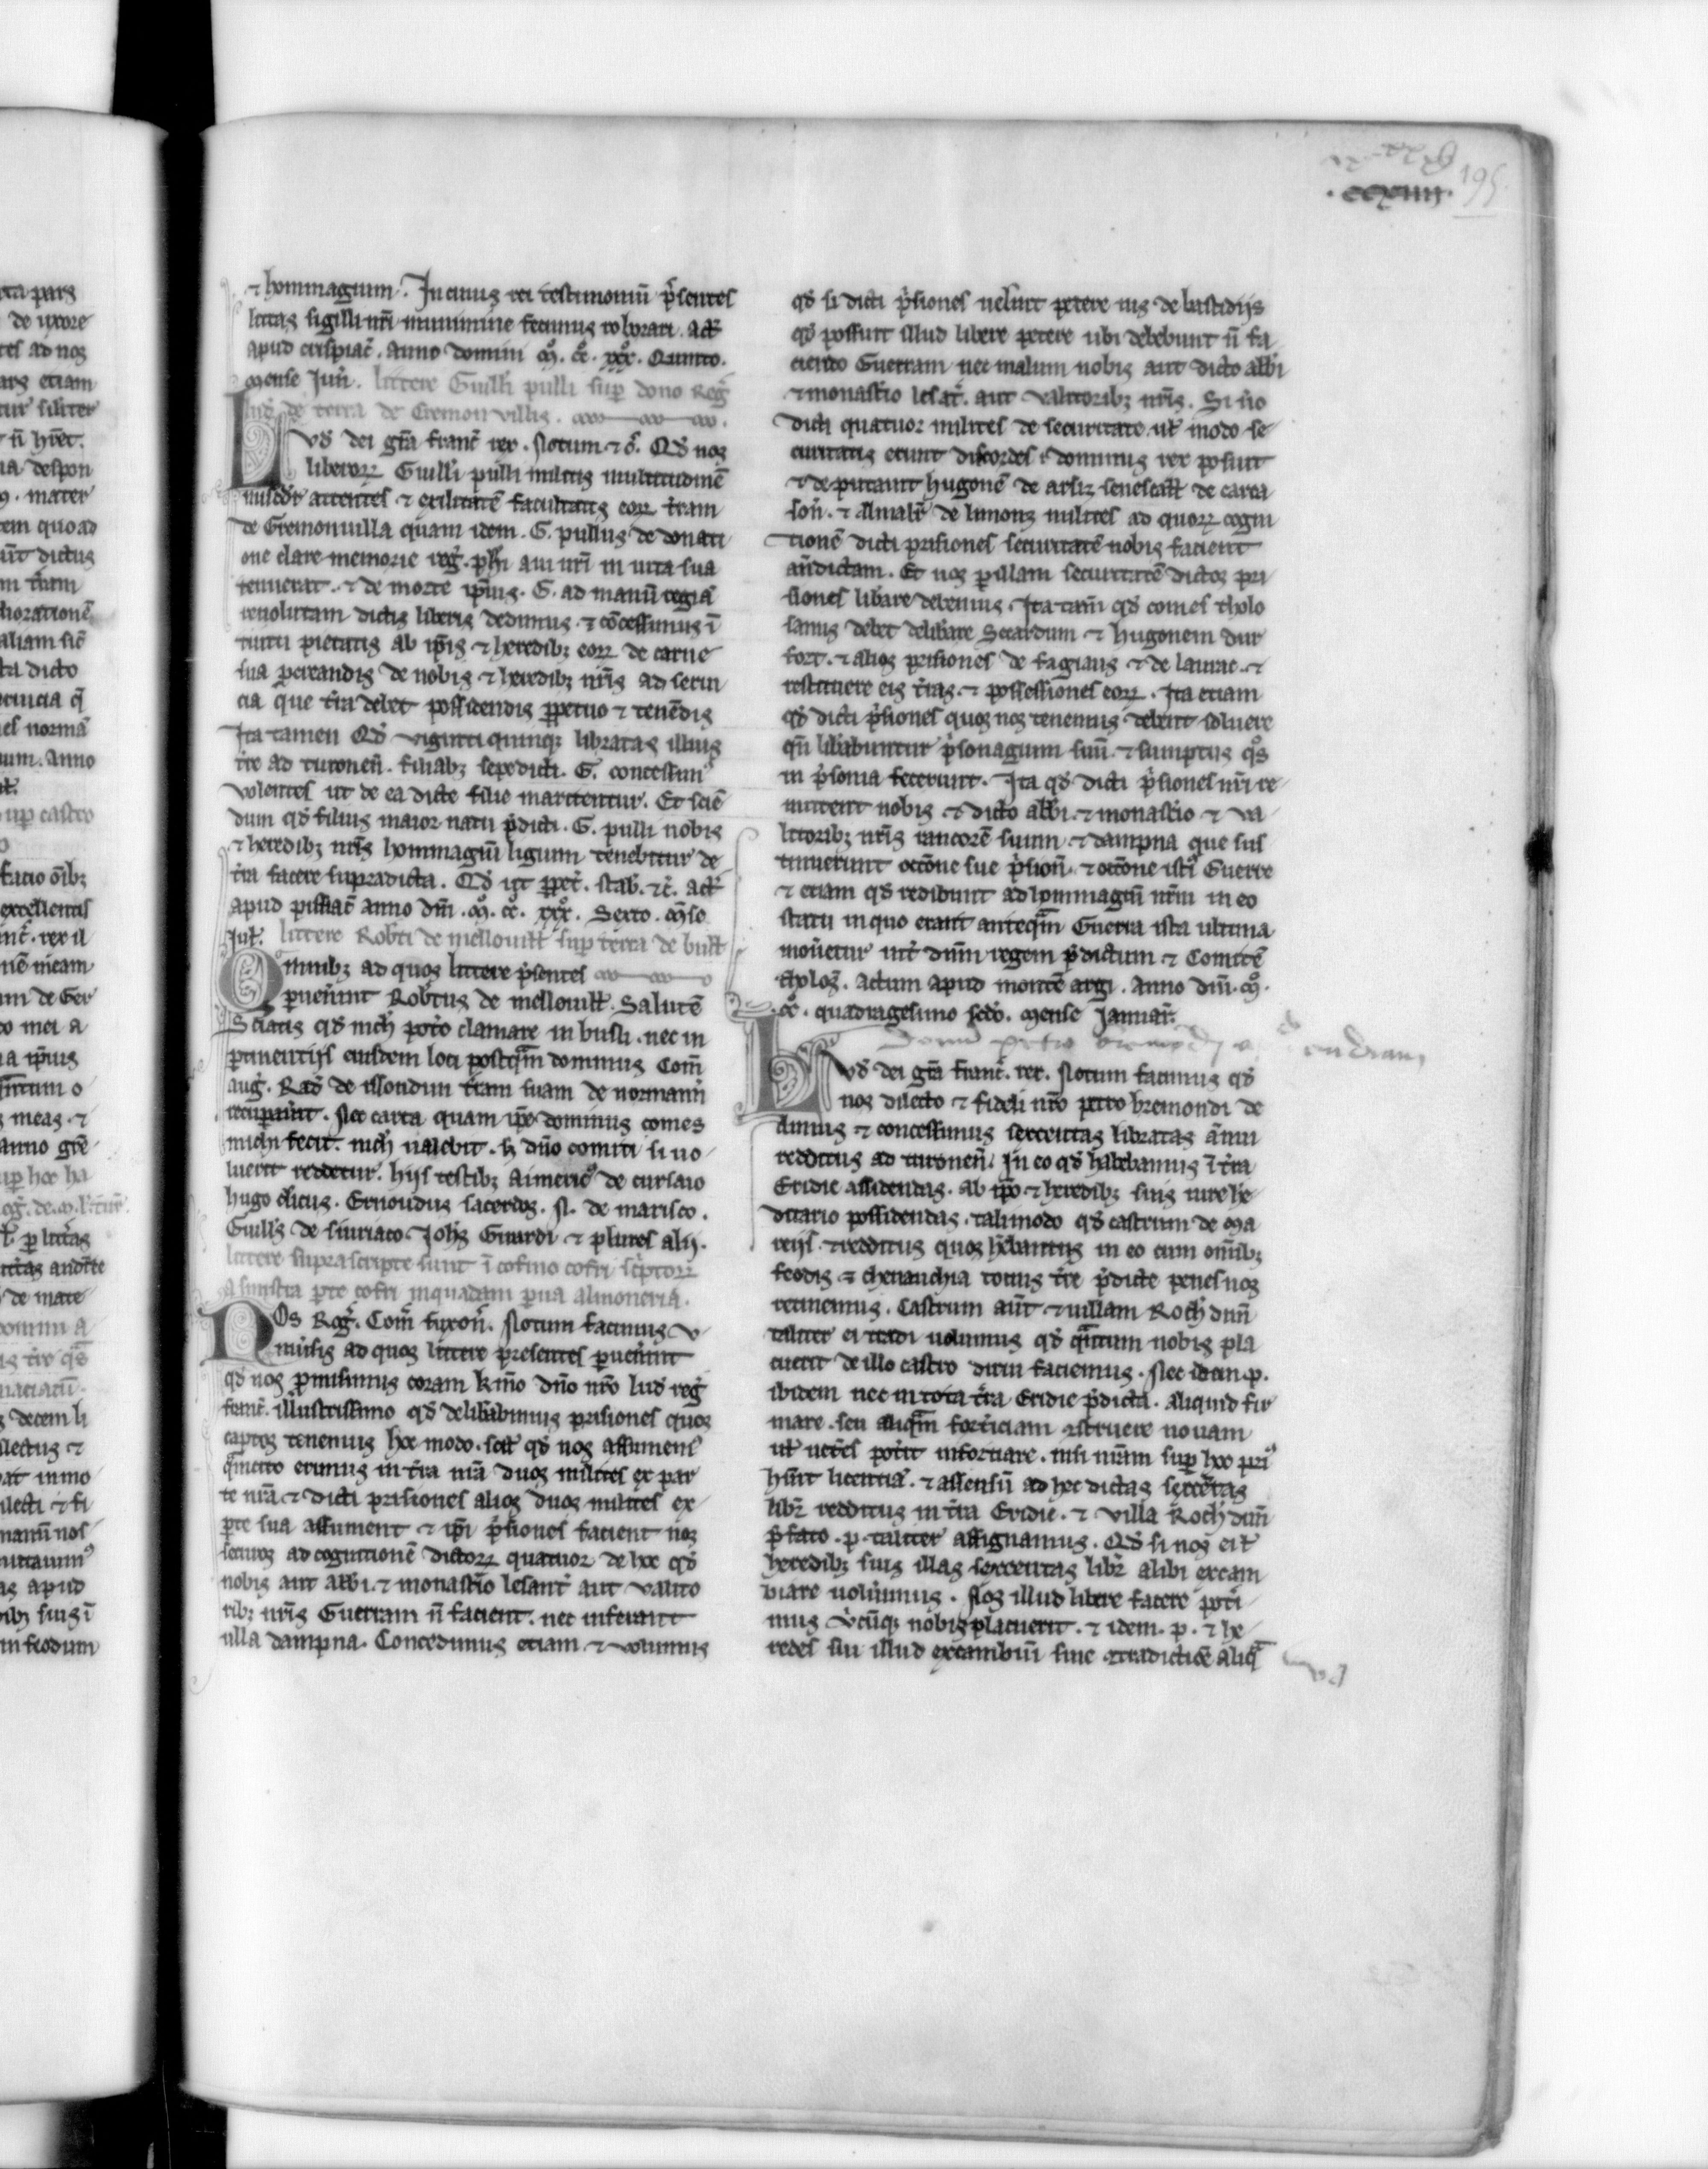 .ccxiiii. 195
⁊ hommagium. In cuius rei testimoniũ p̃sentes
litt̃as sigilli nr̃i munimine fecimus roborari. Act̃
apud crispiac̃. Anno domini .M̊. cc̊. xxx̊. Quinto.
Mense Jun̄. littere Guill̃i pulli sup̱ dono Reg̃
lud̃. de terra de Gremonvillis.
Lvd̃. dei gr̃a franc̃ rex. Notum ⁊c̃. Qd̃ nos
liberoꝝ Guill̃i pulli militis multitudinẽ
attentes ⁊ exilitatẽ facultatis eoꝝ tr̃am
de Gremonuilla quam idem .G. pullus de donati
one clare memorie reg̃. ph̃i aui nr̃i in uita sua
tenuerat. ⁊ de morte ip̃ius .G. ad manũ regiã
reuolutam dictis liberis dedimus ⁊ cõcessimus ĩ
tuitu pietatis ab ip̃is ⁊ heredibꝫ eoꝝ de carne
sua procreandis de nobis ⁊ heredibꝫ nr̃is ad serui
cia que tr̃a debet possidendis ꝑpetuo ⁊ tenẽdis
Ita tamen Qd̃ viginti quinqꝫ libratas illius
tr̃e ad turoneñ. filiabꝫ sepedicti .G. concessimꝰ
volentes ut de ea dicte filie maritentur. Et sciẽ
dum qd̃ filius maior natu p̃dicti .G. pulli nobis
⁊ heredibꝫ nr̃is hommagiũ ligium tenebitur de
tr̃a facere supradicta. Qd̃ ut ꝑpet̃. stab̃. ⁊c̃. act̃
apud pissiac̃ anno dñi .M̊. cc̊. xxx̊. Sexto. Mẽse
Jul̃. littere Rob̃ti de mellouill̃ sup̱ terra de bull̃
Omnibꝫ ad quos littere p̃sentes
ꝑuen̄int Rob̃tus de mellouill̃. Salutẽ
Sciatis qd̃ nich̃ pot̃o clamare in busli. nec in
ꝑtinentiis eiusdem loci postq̃m dominus Com̃
aug̃. Rad̃ de issondun tr̃am suam de normann̄
recuꝑauit. Nec carta quam ip̃e dominus comes
michi fecit. nich̃ ualebit. s̃ dño comiti si uo
luerit reddetur. hiis testibꝫ Aimericꝰ de cursaio
hugo cl̃icus. Ernoudus sacerdos. N. de marisco.
Guill̃s de siuriaco Joh̃s Guiardi ⁊ plures alij.
littere suprascripte sunt ĩ cofino cofri sc̃ptoꝝ
A sinistra ꝑte cofri in quadam parua almoneria.
Nos Rog̃. Com̃ fuxoñ. Notum facimus v
niũsis ad quos littere presentes ꝑuen̄int
qd̃ nos ꝓmisimus coram k̃mo dño nr̃o lud̃ reg̃
franc̃. illustrissimo qd̃ delib̃abimus prisiones quos
captos tenemus hoc modo. scił qd̃ nos assumemꝰ
q̃mcito erimus in tr̃a nr̃a duos milites ex par
te nr̃a ⁊ dicti prisiones alios duos milites ex
ꝑte sua assument ⁊ ip̃i p̃siones facient nos
securos ad cognitionẽ dictoꝝ quatuor de hoc qd̃
nobis aut abb̃i ⁊ monast̃io lesant̃ aut valito
ribꝫ nr̃is Guerram ñ facient. nec inferant
ulla dampna. Concedimus etiam ⁊ volumus
qd̃ si dicti p̃siones uelint petere ius de bastidiis
qd̃ possint illud libere petere ubi debebunt ñ fa
ciendo Guerram nec malum nobis aut dicto abb̃i
⁊ monast̃io lesat̃. aut valitoribꝫ nr̃is. Si ũo
dicti quatuor milites de securitate ul̃ modo se
curitatis erunt discordes. dominus rex posuit
⁊ deputauit hugonẽ de arsiz senescall̃ de carca
soñ. ⁊ Almalr̃ de limous milites ad quoꝝ cogni
tionẽ dicti prisiones securitatẽ nobis facient
añdictam. Et nos ꝑ illam securitatẽ dictos pri
siones lib̃are debemus. Ita tam̃ qd̃ comes tholo
sanus debet delib̃are Sicardum ⁊ hugonem dur
fort. ⁊ alios prisiones de fagiaus ⁊ de laurac. ⁊
restituere eis tr̃as. ⁊ possessiones eoꝝ. Ita etiam
qd̃ dicti p̃siones quos nos tenemus debent soluere
qñ lib̃abuntur p̃sonagium suũ. ⁊ sumptus q̃s
in p̃sonia fecerunt. Ita qd̃ dicti p̃siones nr̃i re
mittent nobis ⁊ dicto abb̃i. ⁊ monast̃io ⁊ va
litoribꝫ nr̃is rancorẽ suum ⁊ dampna que sus
tinuerunt occõne sue p̃sioñ. ⁊ occõne isti Guerre
⁊ etiam qd̃ redibunt ad hommagiũ nr̃m in eo
statu in quo erant anteq̃m Guerra ista ultima
mou̾etur int̾ dñm regem p̃dictum ⁊ Comitẽ
tholoꝫ. Actum apud montẽ argi. Anno dñi .M̊.
cc̊. quadragesimo scd̃o. Mense Januar̃.
Lvd̃. dei gr̃a franc̃. rex. Notum facimus qd̃
nos dilecto ⁊ fideli nr̃o petro bremondi de
dimus ⁊ concessimus sexcentas libratas ãnui
redditus ad turoneñ. In eo qd̃ habebamus ĩ tr̃a
Eridie assidendas. ab ip̃o ⁊ heredibꝫ suis iure he
ditario possidendas. tali modo qd̃ castrum de Ma
reiis. ⁊ redditus quos h̃ebamus in eo cum om̃ibꝫ
feodis ⁊ cheuauchia totius tr̃e p̃dicte penes nos
retinemus. Castrum aũt ⁊ uillam Roch̃ duñ
taliter ei tradi uolumus qd̃ q̃ntum nobis pla
cuerit de illo castro dirui faciemus. Nec idem .p.
ibidem nec in tota tr̃a Eridie p̃dicta. aliquid fir
mare. seu aliq̃m fort̾iciam ꝯstruere nouam
ul̃ uet̾es pot̾it infortiare. nisi nr̃am sup̱ hoc priꝰ
hũit licentiã. ⁊ assensũ ad hec dictas sexcẽtas
libr̃ redditus in tr̃a Eridie. ⁊ villa Roch̃ duñ
p̃fato .p. taliter assignamus. Qd̃ si nos ei ul̃
heredibꝫ suis illas sexcentas libr̃ alibi excam
biare uolũimus. Nos illud libere facere pot̾i
mus v̾cũqꝫ nobis placuerit. ⁊ idem .p. ⁊ he
redes sui illud excambiũ sine ꝯtradictiõe aliq̃